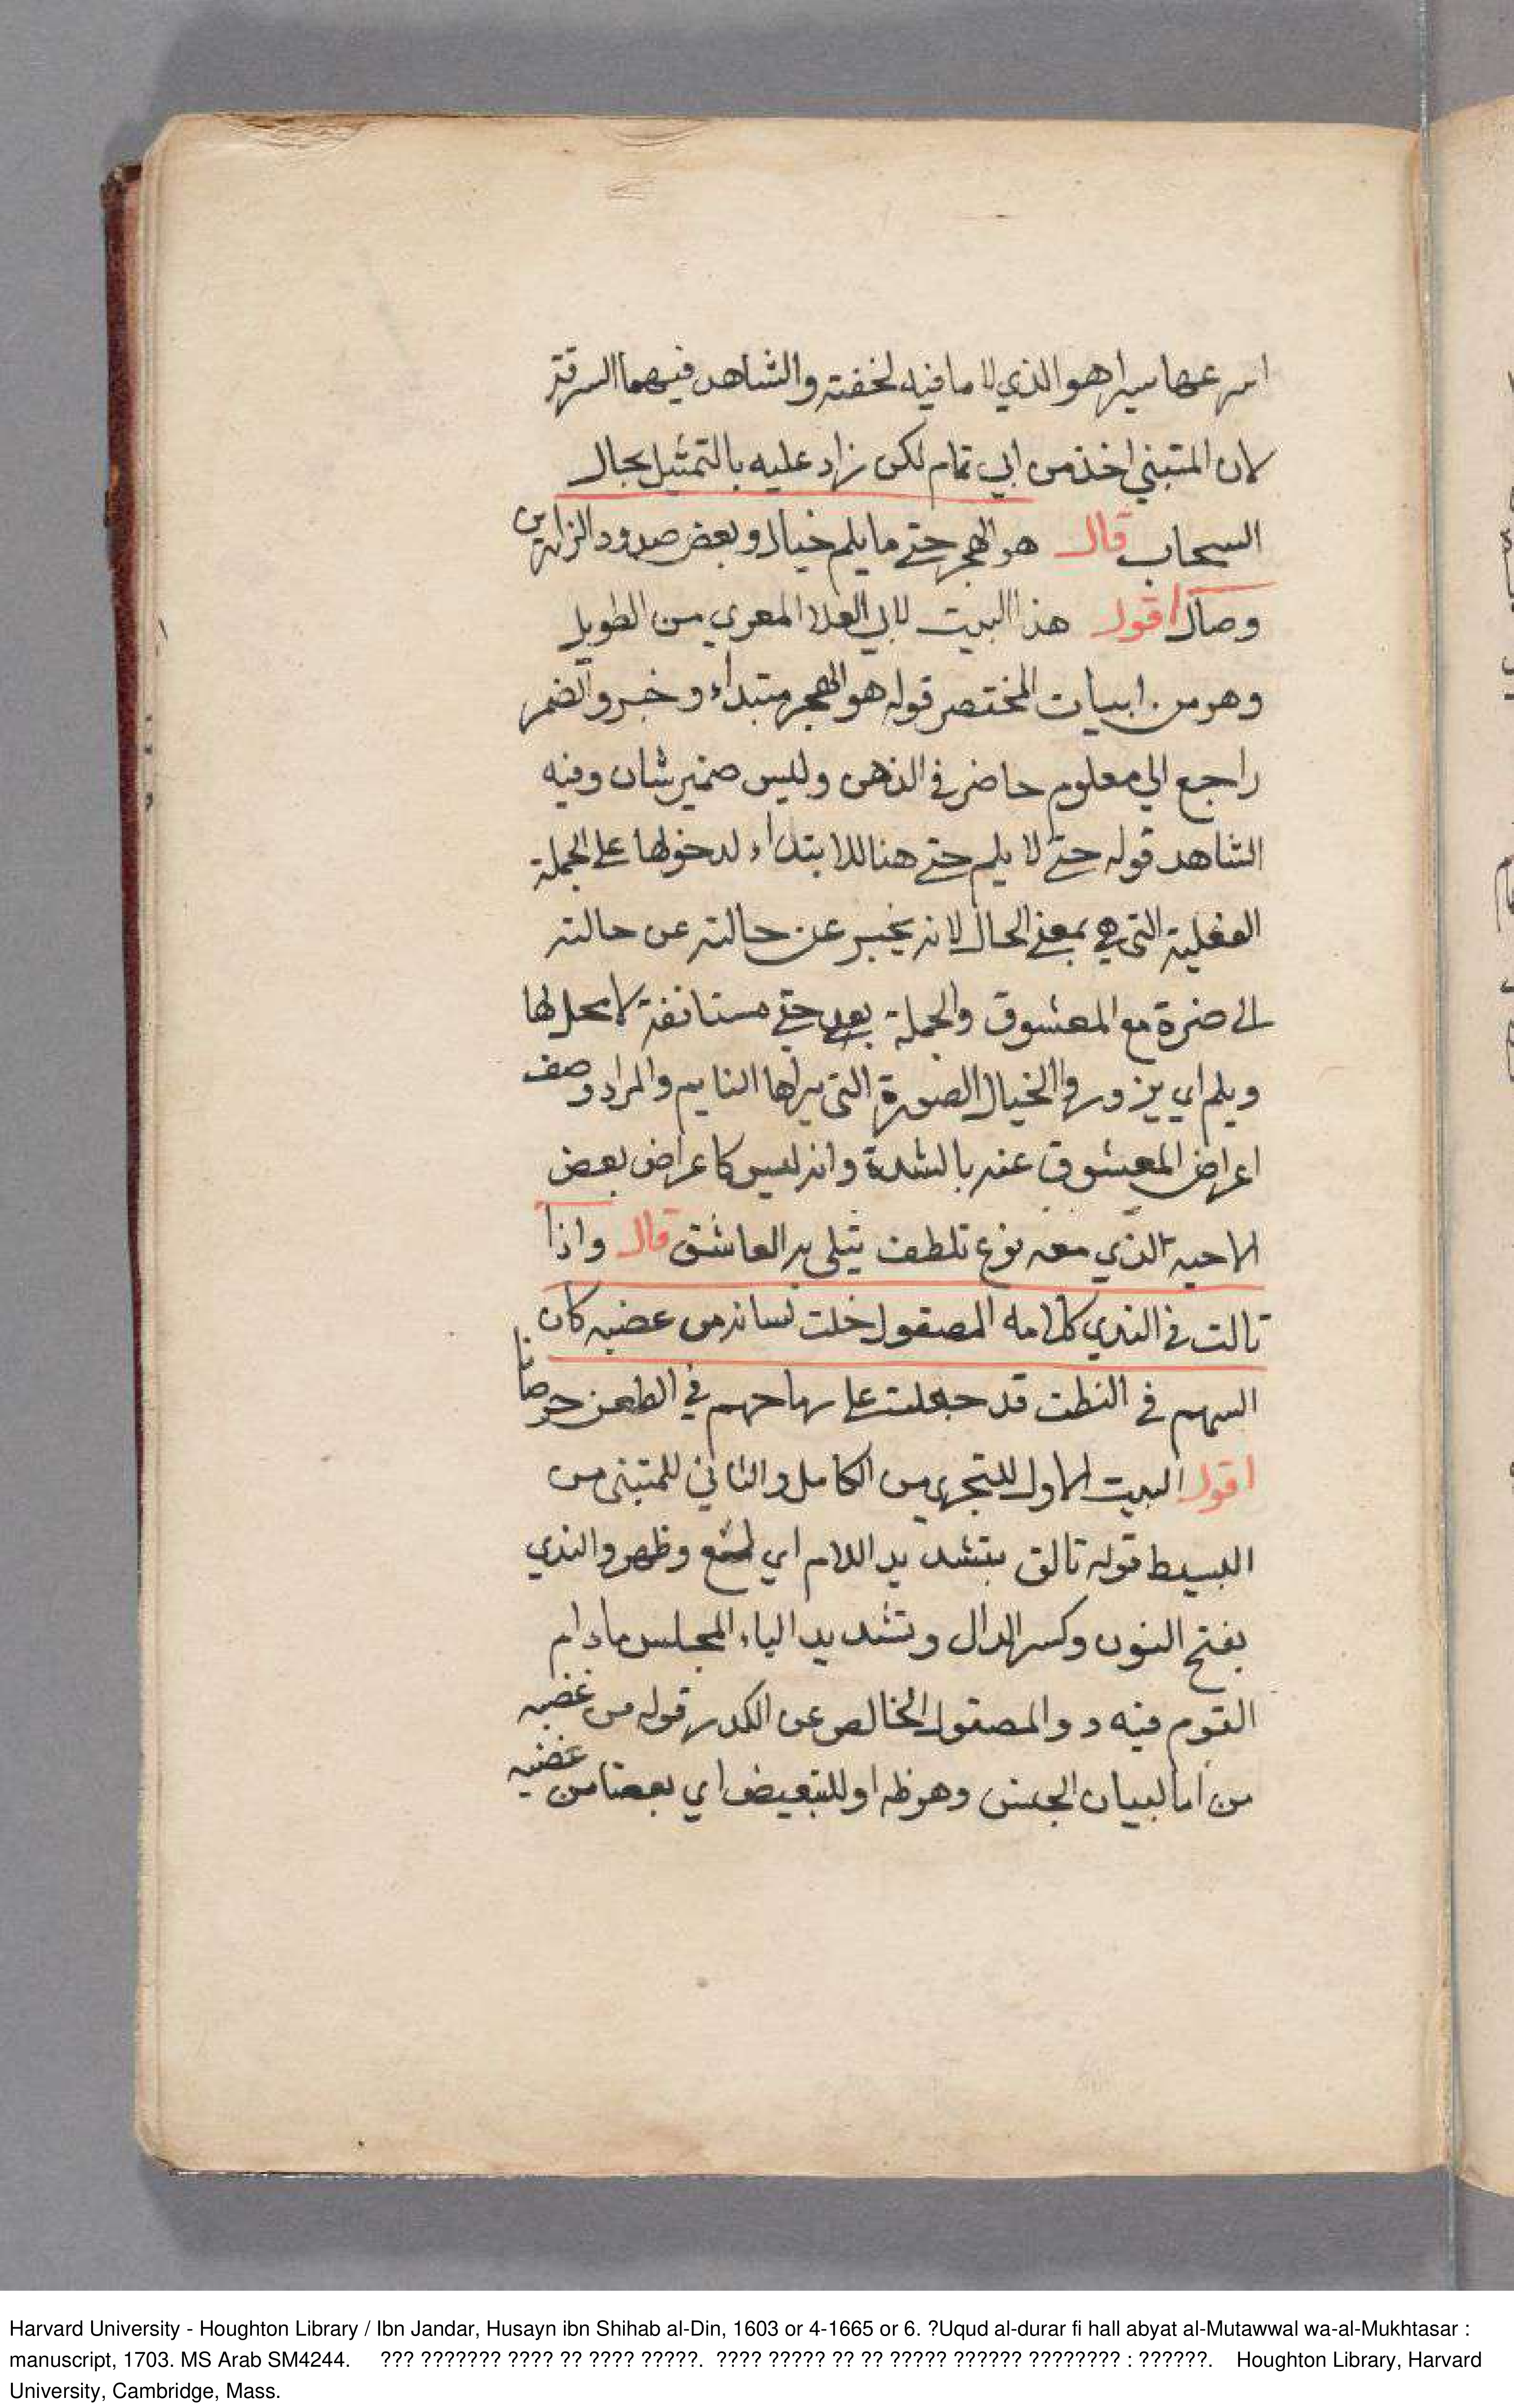 اسرعها سيرا هو الذي لا ما فيه لخفته والشاهد فيهما السرقة
لان المتبني اخذ من ابي تمام لكن زاد عليه بالتمثيل بحال
السحاب قال هو الهجر حتى ما يلم خيال وبعض صدود الزايرين
وصال اقول هذا البيت لابي العلا المعري من الطويل
وهو من ابيات المختصر قوله هو الهجر مبتداء وخبر والضمر
راجع الي معلوم حاضر في الذهن وليس ضمير شان وفيه
الشاهد قوله حتى لا يلم حتى هنا للابتداء لدخولها على الجملة
الفعلية التى هي بمعنى الحال لانه يخبر عن حالته عن حالته
الحاضرة مع المعشوق والجملة بعد حتى مستانفة لا محل لها
ويلم اي يزور والخيال الصورة التى يراها النايم والمراد وصف
اعراض المعشوق عنه بالشدة وانه ليس كاعراض بعض
الاحبة الذي معه نوع تلطف يتلى به العاشق قال واذا
تالت في الندي كلامه المصقول خلت لسانه من عضبه كان
السهم في النطت قد جعلت على رماحهم في الطعن خرصانا
اقول البيت الاول للبحتري من الكامل والثاني للمتبنى من
البسيط قوله تالق بتشديد اللام اي لمع وظهر والندي
بفتح النون وكسر الدال وتشديد الياء المجلس ما دام
القوم فيه و والمصقول الخالص عن الكدر قوله من عضبه
من اما لبيان الجنس وهو ظه او للتبعيض اي بعضا من عضبه
Harvard University - Houghton Library / Ibn Jandar, Husayn ibn Shihab al-Din, 1603 or 4-1665 or 6. ?Uqud al-durar fi hall abyat al-Mutawwal wa-al-Mukhtasar :
manuscript, 1703. MS Arab SM4244. ??? ??????? ???? ?? ???? ?????. ???? ????? ?? ?? ????? ?????? ???????? : ??????. Houghton Library, Harvard
University, Cambridge, Mass.